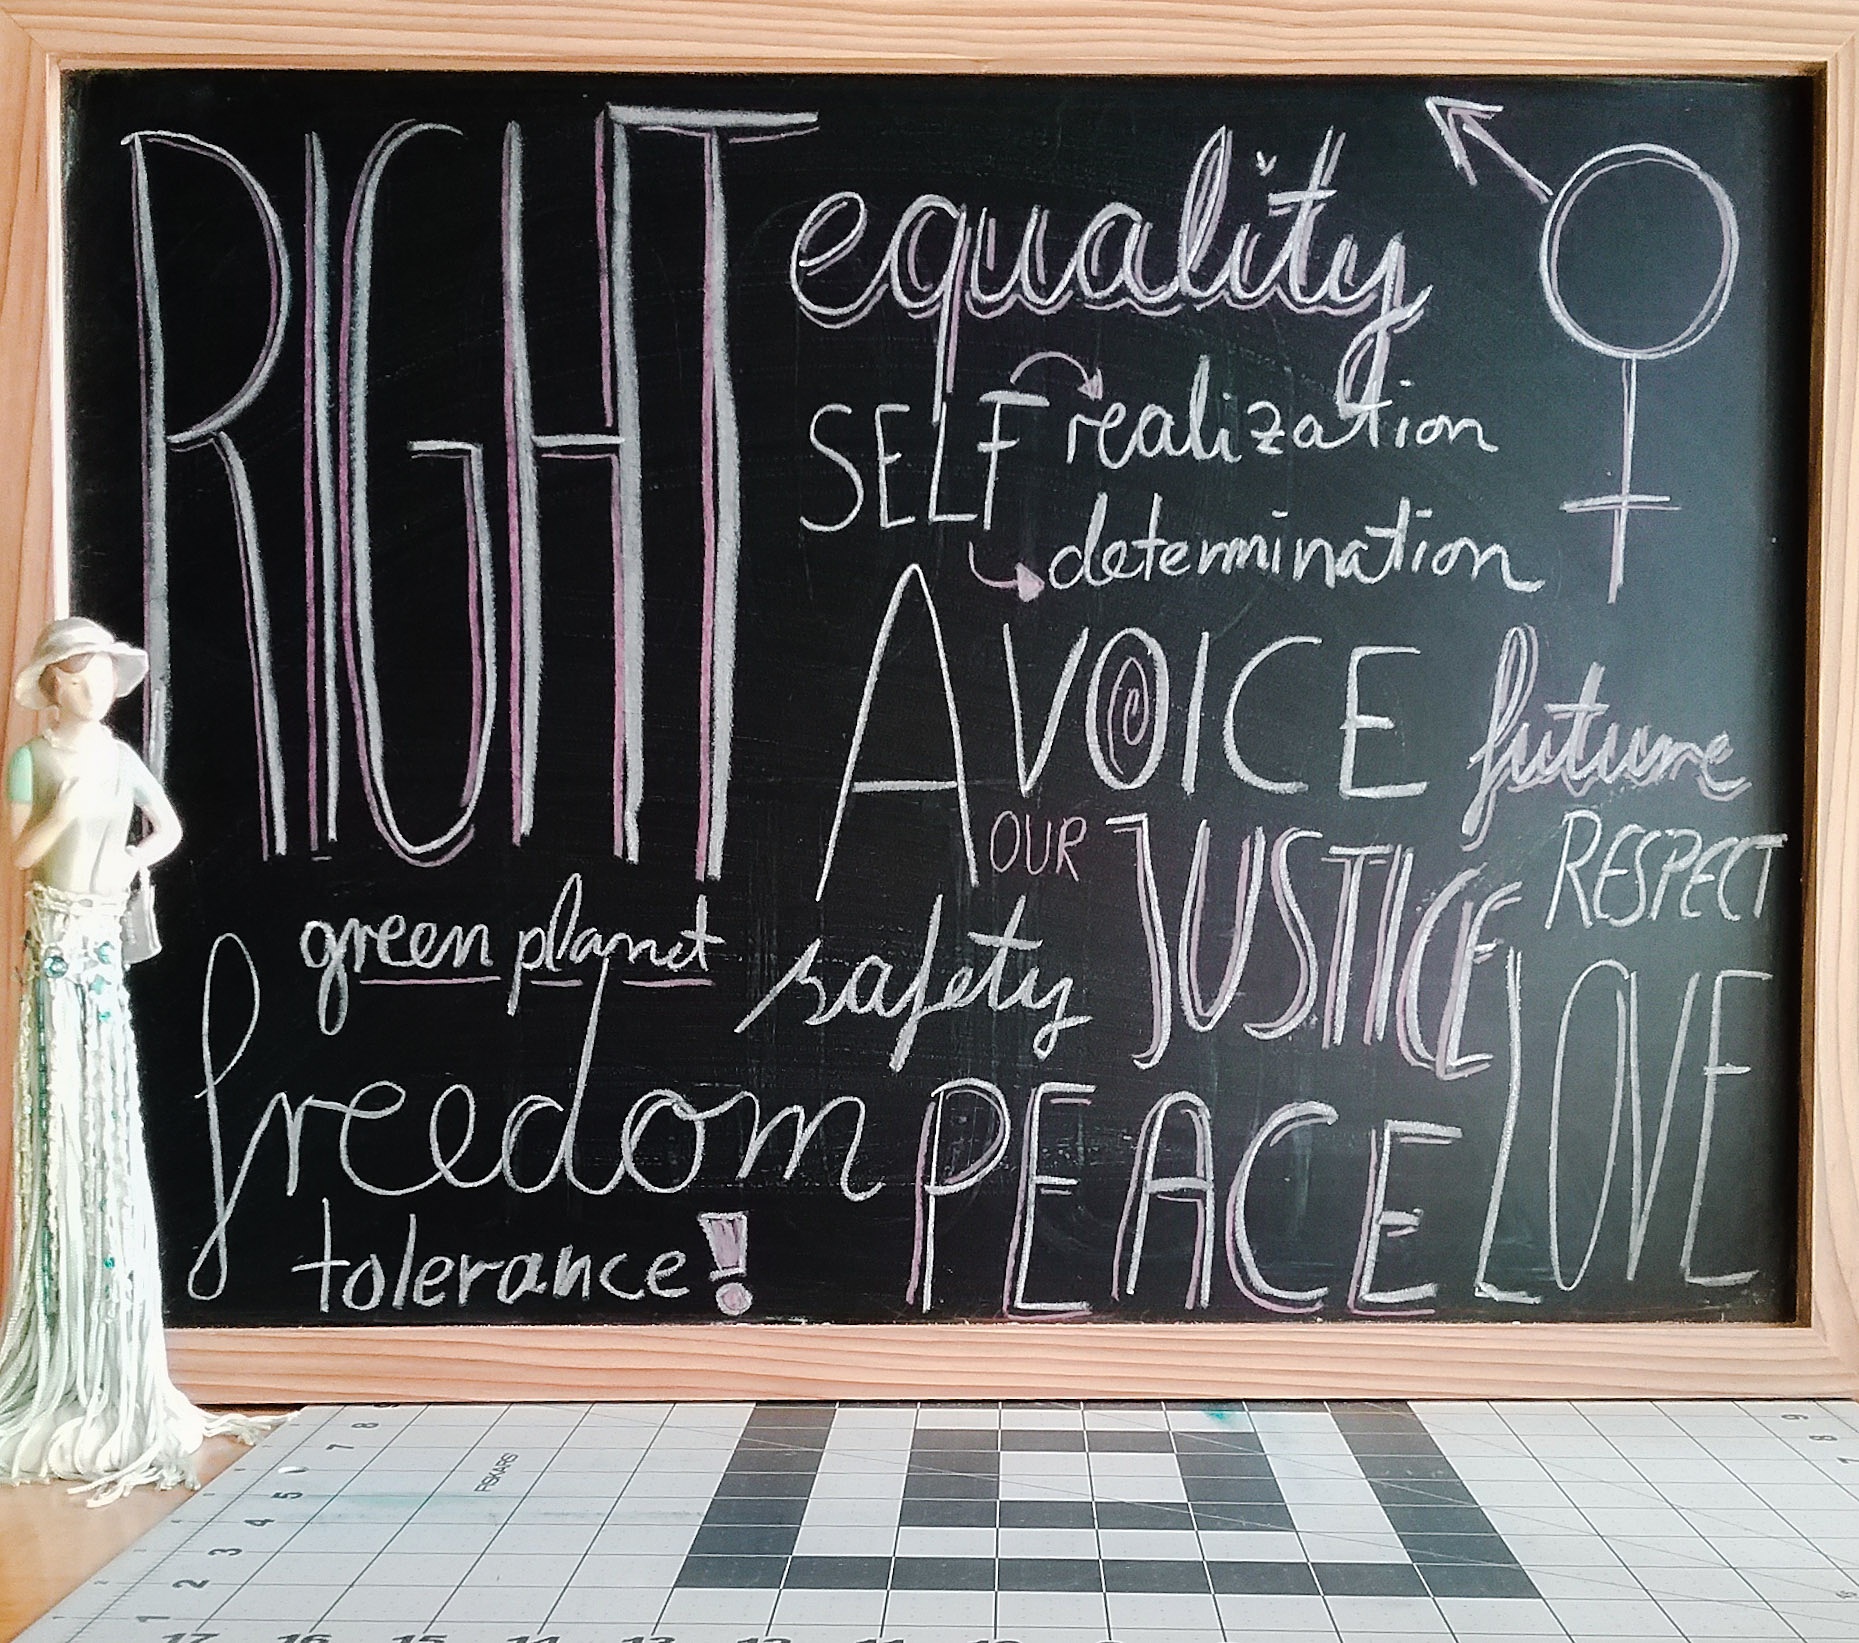 RIGHT
equality
SELF realization
determination
A VOICE
future
OUR JUSTICE
RESPECT
green planet
safety
LOVE
freedom
PEACE
tolerance!
FISKARS
8
7
6
5
4
3
2
1
17 16 15 14 13 12 11 10 9
9
8
7